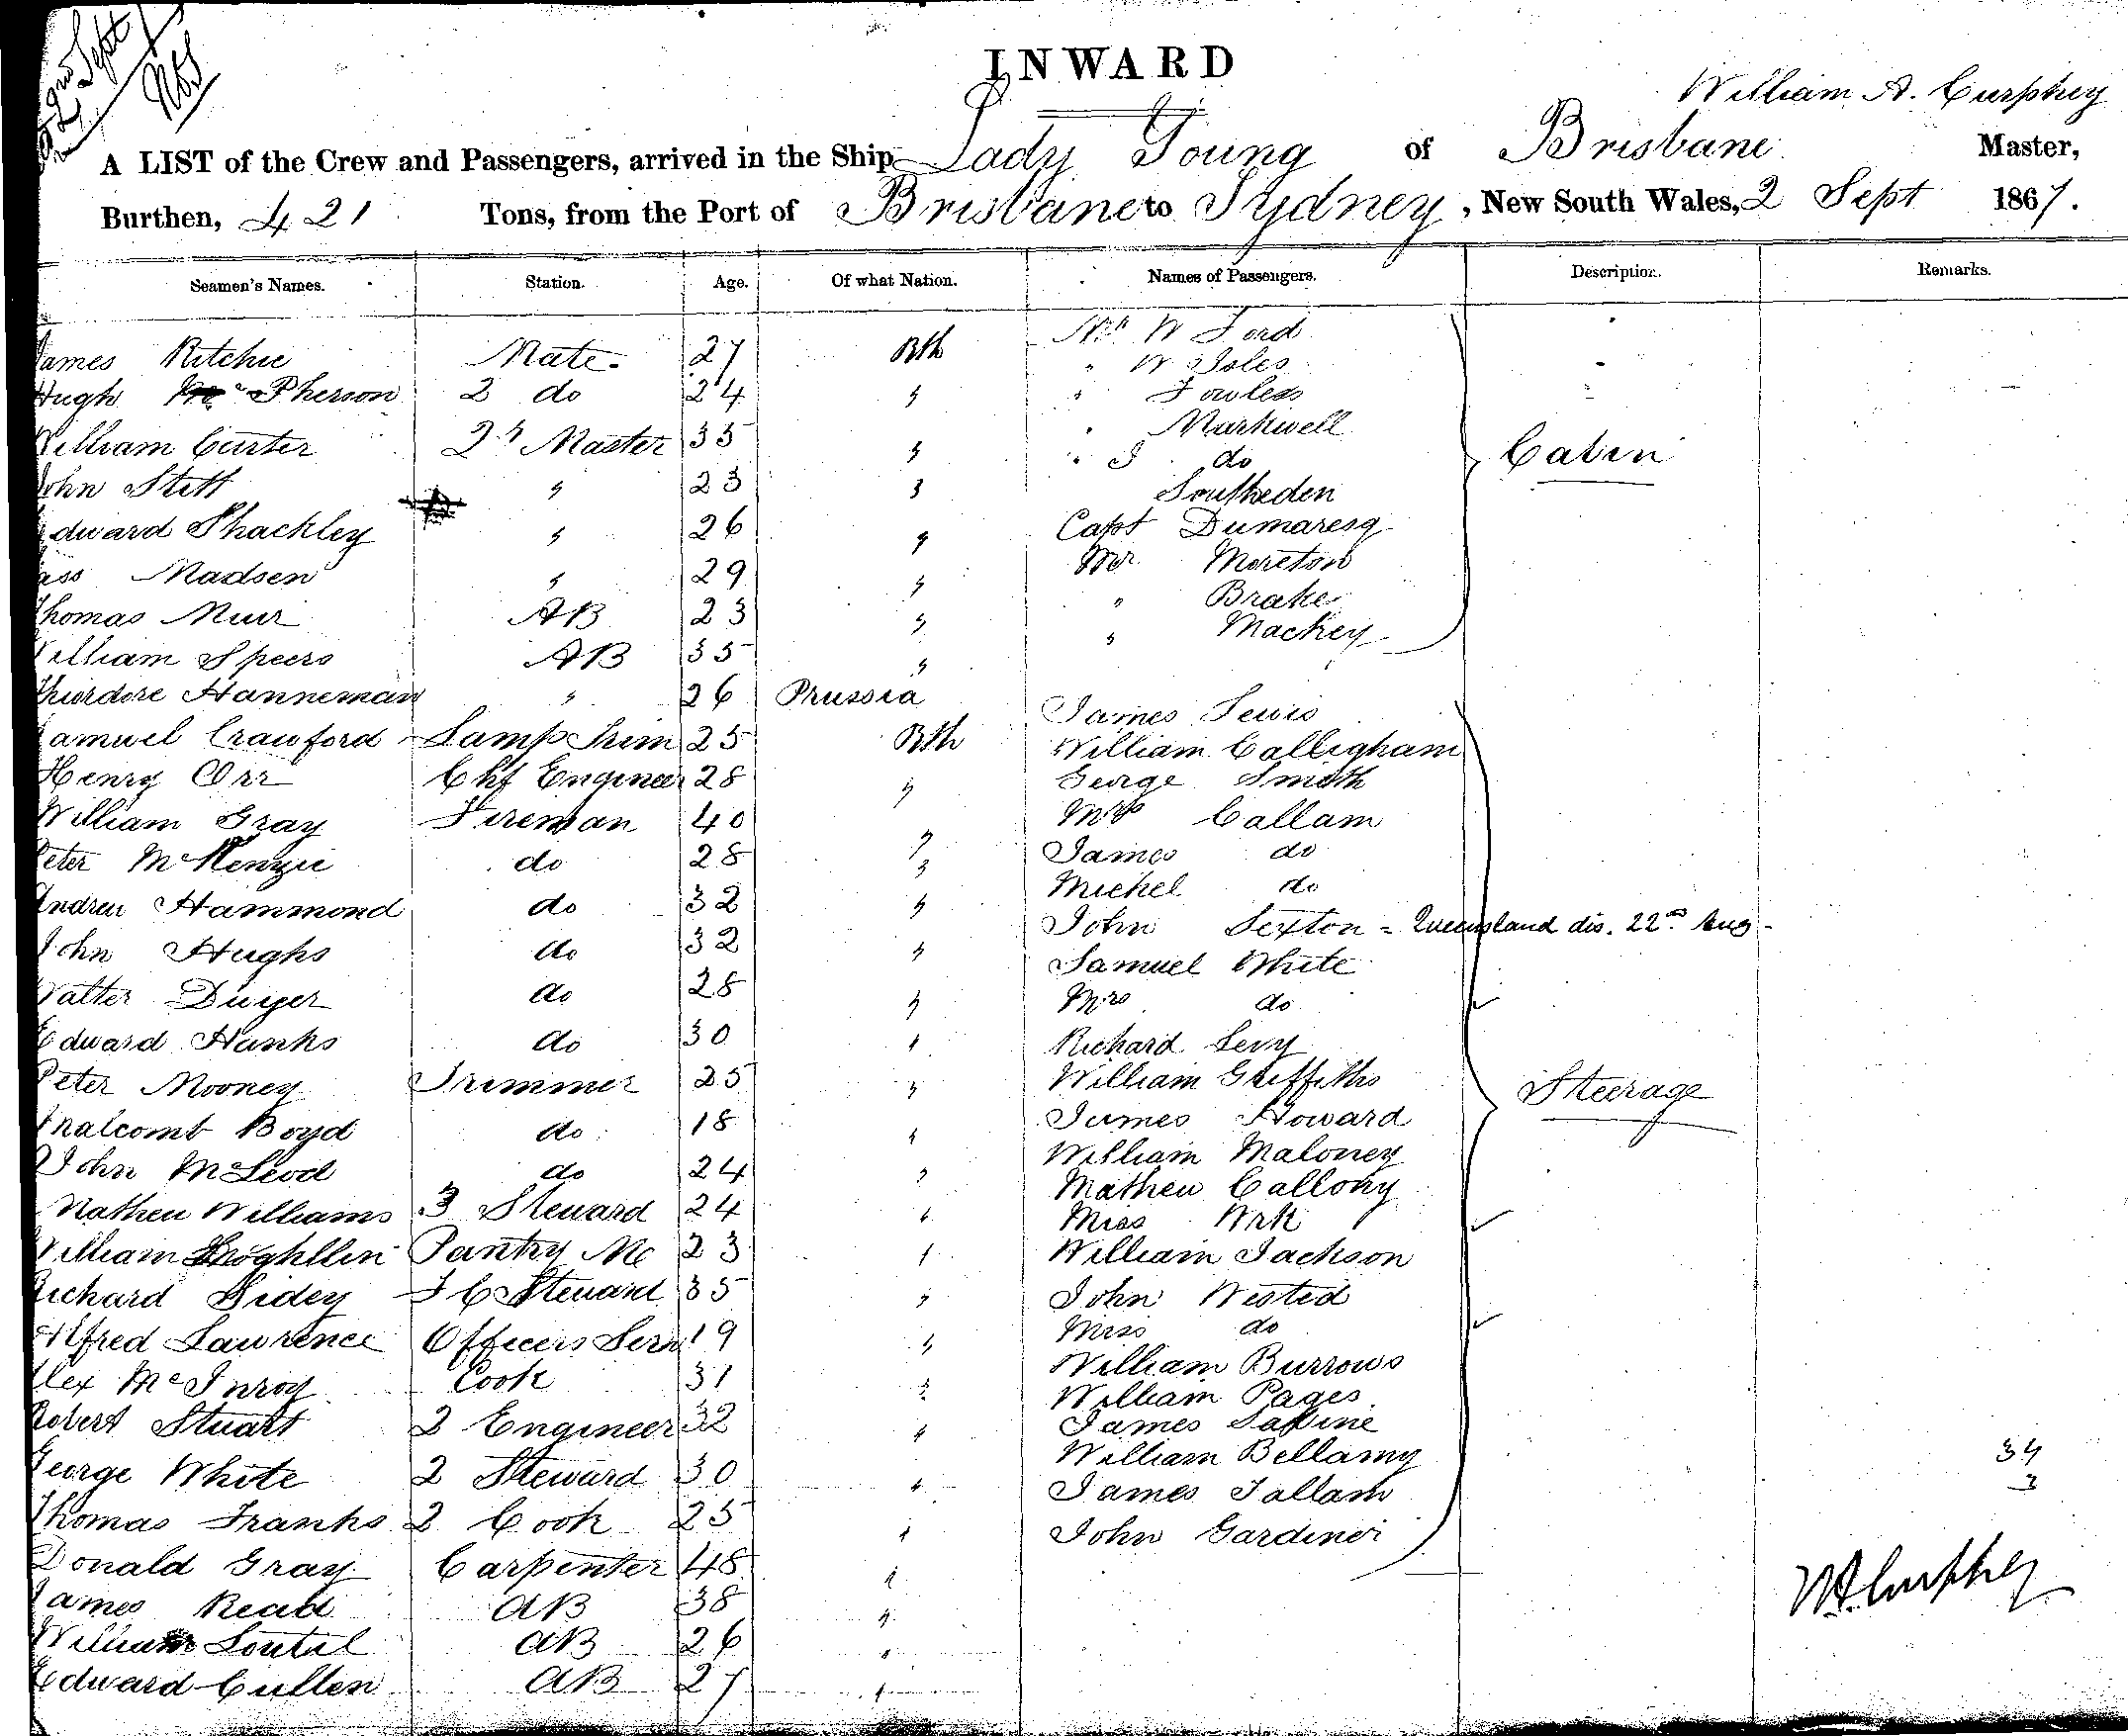 INWARD
William A. Curphey
A LIST of the Crew and Passengers, arrived in the Ship Lady Young of Brisbane Master,
Burthen, 421 Tons, from the Port of Brisbane to Sydney, New South Wales, 2 Sept 1867.
Seamen's Names. Station. Age. Of what Nation. Names of Passengers. Description. Remarks.
James Ritchie Mate 27 Bth Mr W Ford
" W Isles
Hugh McPherson 2 do 24 " " Fowles
William Curter 2r Master 35 " " Markwell
" J do Cabin
John Stett " 23 " Southeden
Edward Shackley " 26 " Capt Dumaresq
Madsen " 29 " Mr Moreton
" Brake
Thomas Muir AB 23 " " Mackey
William Speers AB 35 "
Theordore Hanneman " 26 Prussia James Lewis
Samuel Crawford Lamp Trim 25 Bth William Calligham
Henry Orr Chf Engineer 28 " George Smith
William Gray Fireman 40 " Mrs Callam
Peter McKenzie do 28 " James do
Michel do
Andrew Hammond do 32 " John Sexton = Queensland dis. 22nd Aug -
John Hughs do 32 " Samuel White
Walter Dwyer do 28 " Mrs do
Edward Hanks do 30 " Richard Levy
Peter Mooney Trimmer 25 " William Griffiths Steerage
Malcomb Boyd do 18 " James Howard
William Maloney
John McLeod do 24 " Mathew Callony
Mathew Williams 3 Steward 24 " Miss
William Pantry 23 " William Jackson
Richard Sidey F C Steward 35 " John Wested
Alfred Lawrence Officers Serv 19 " Miss do
William Burrows
Alex McInroy Cook 31 " William Pages
Robert Stuart 2 Engineer 32 " James
William Bellamy 34
George White 2 Steward 30 " James Tallam 3
Thomas Franks 2 Cook 25 " John Gardiner
Donald Gray Carpenter 48 "
James Read AB 38 " WA Curphey
William AB 26 "
Edward Cullen AB 27 "